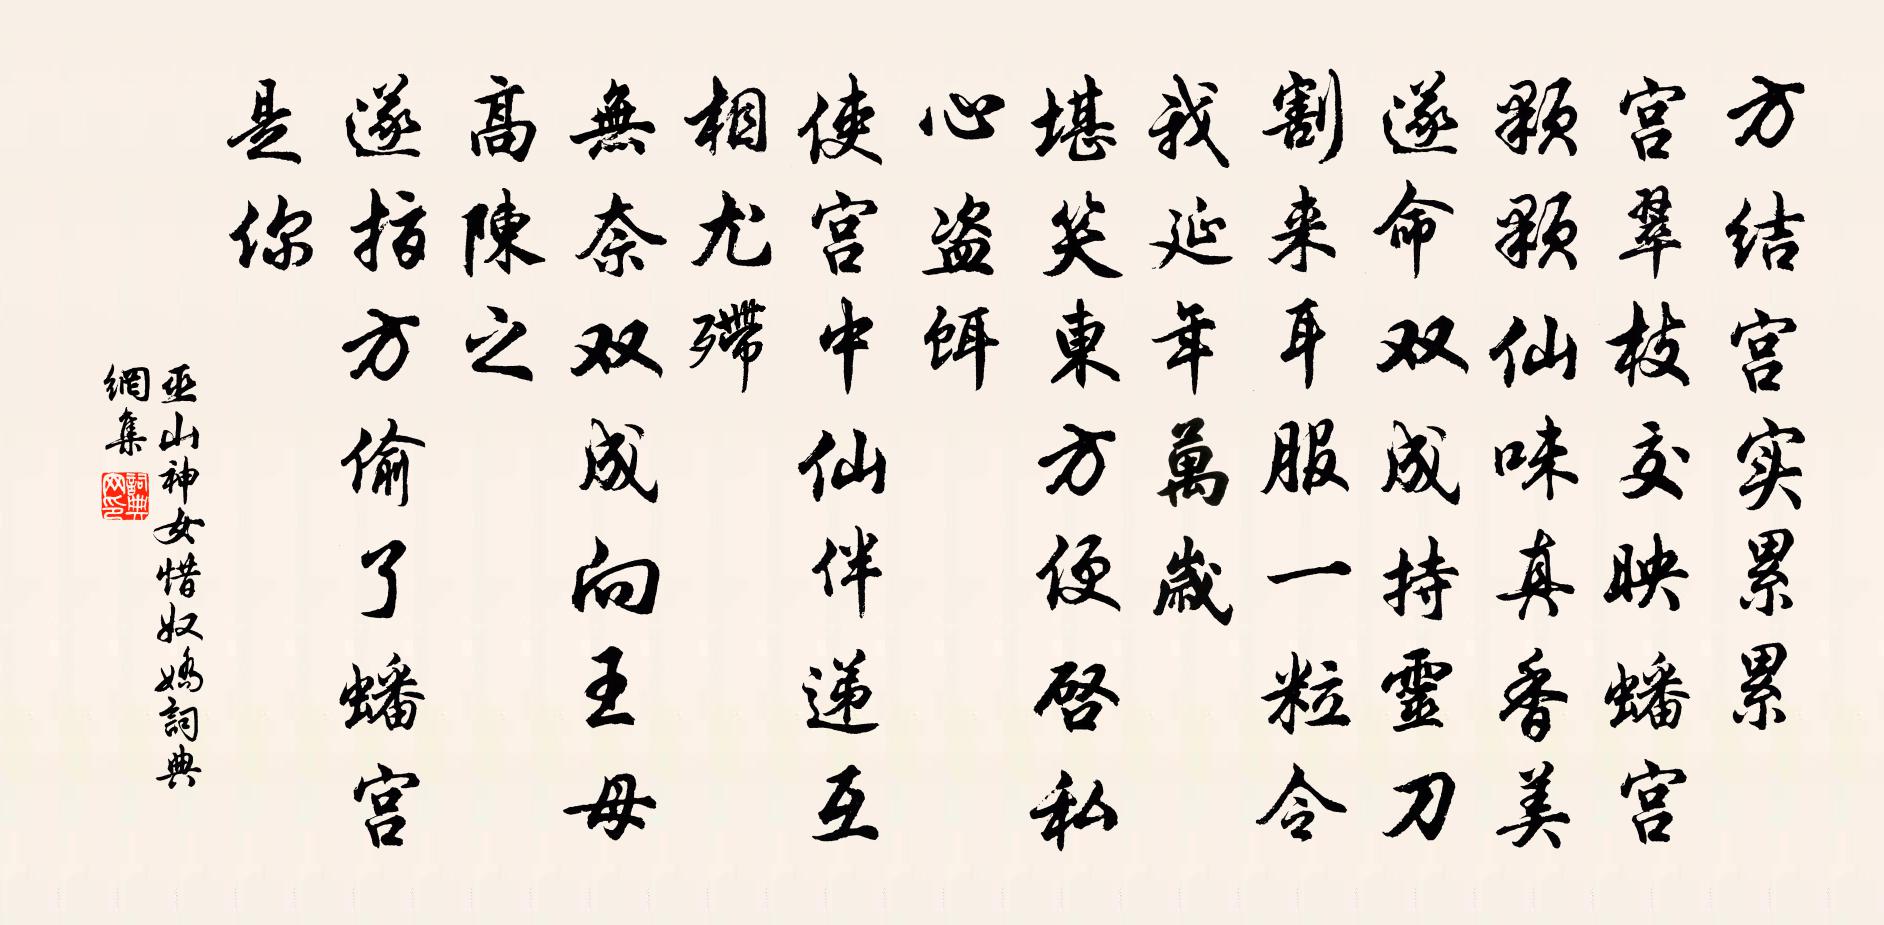 方结宫实累累
宫翠枝交映蟠宫
颗颗仙味真香美
遂命双成持靈刀
割来耳服一粒令
我延年萬歲
堪笑東方便啓私
心盗饵
使宫中仙伴递互
相尤殢
無奈双成向王母
高陳之
遂指方偷了蟠宫
是你
巫山神女惜奴嬌詞典
網集
詞典
网印